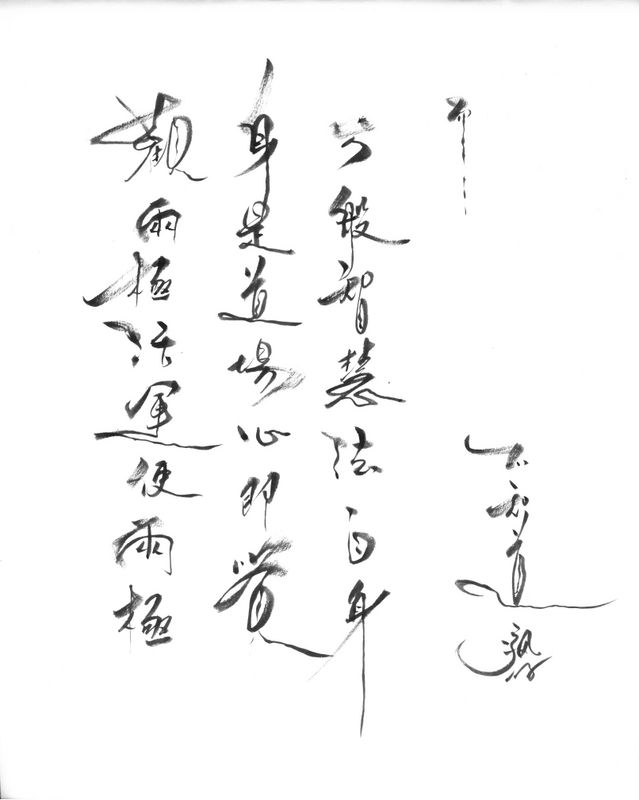 不知道
般智慧法自身
身是道場心即覺
觀兩極活運使兩極